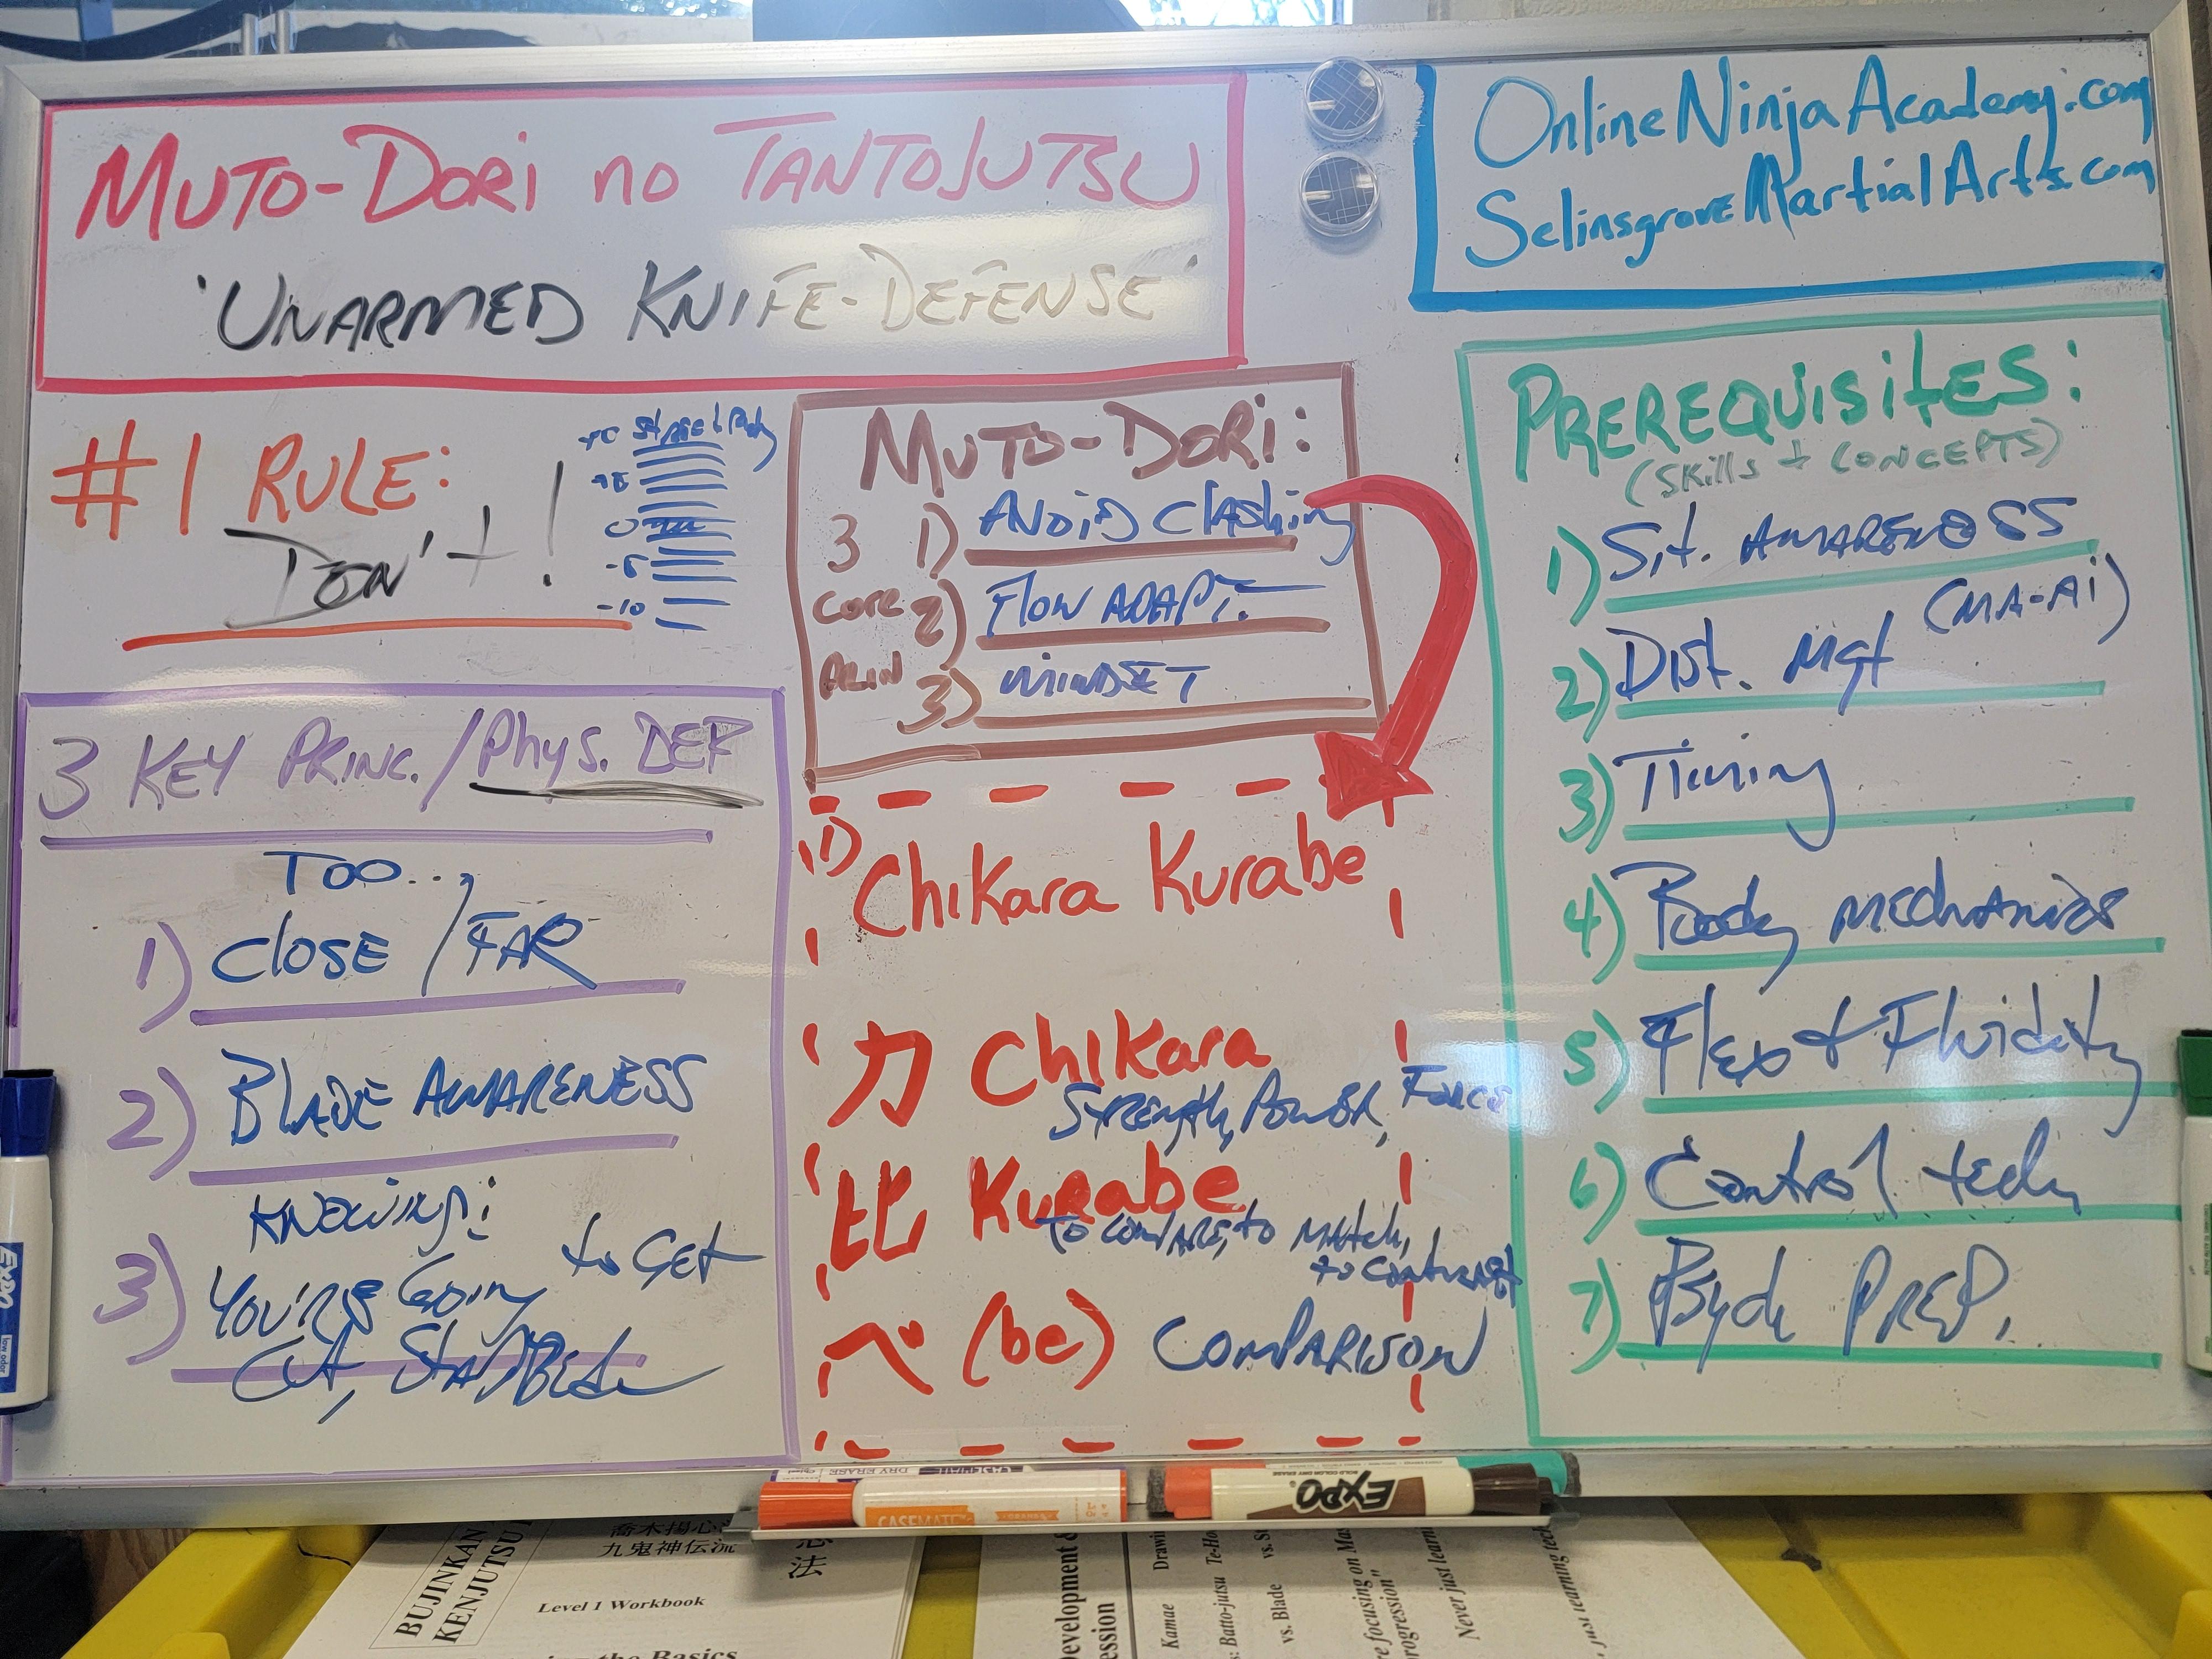 MUTO-DORi no TANTOJUTSU
'UNARMED KNIFE-DEFENSE'
OnlineNinjaAcademy.com
SelinsgroveMartialArts.com
#1 RULE:
DON't!
+5
0
-5
-10
MUTO-DORi:
3 CORE PRIN
1) AVOiD ClAShing
2) Flow ADAPT.
3) MiNDSET
PREREQUiSitES:
(Skills + CONCEPTS)
1) Sit. AWARENESS
2) Dist. Mgt (MA-Ai)
3) Timing
4) Body MEChANiCS
5) Flex + Fluidity
6) Control tech
7) Psych PREP.
3 KEY PRiNC./Phys. DEF
TOO...
1) CLOSE / FAR
2) BLADE AWARENESS
KNOWiNG:
3) YOU'RE Going to GET
CUt, StABBED
1) Chikara Kurabe
力 Chikara
STRENgth, POWER, FORCE
比 Kurabe
to COMPARE, to MAtch,
to contrast
べ (be) COMPARiSON
EXPO
low odor
CASEMATE
DRY ERASE
EXPO
BOLD COLOR DRY ERASE
BUJINKAN
KENJUTSU
九鬼神伝流
Level 1 Workbook
the Basics
Development &
ession
Kamae
Drawi
: Batto-jutsu Te-Ho
vs. Blade
vs. S
re focusing on Ma
rogression"
Never just learn
just learning tech